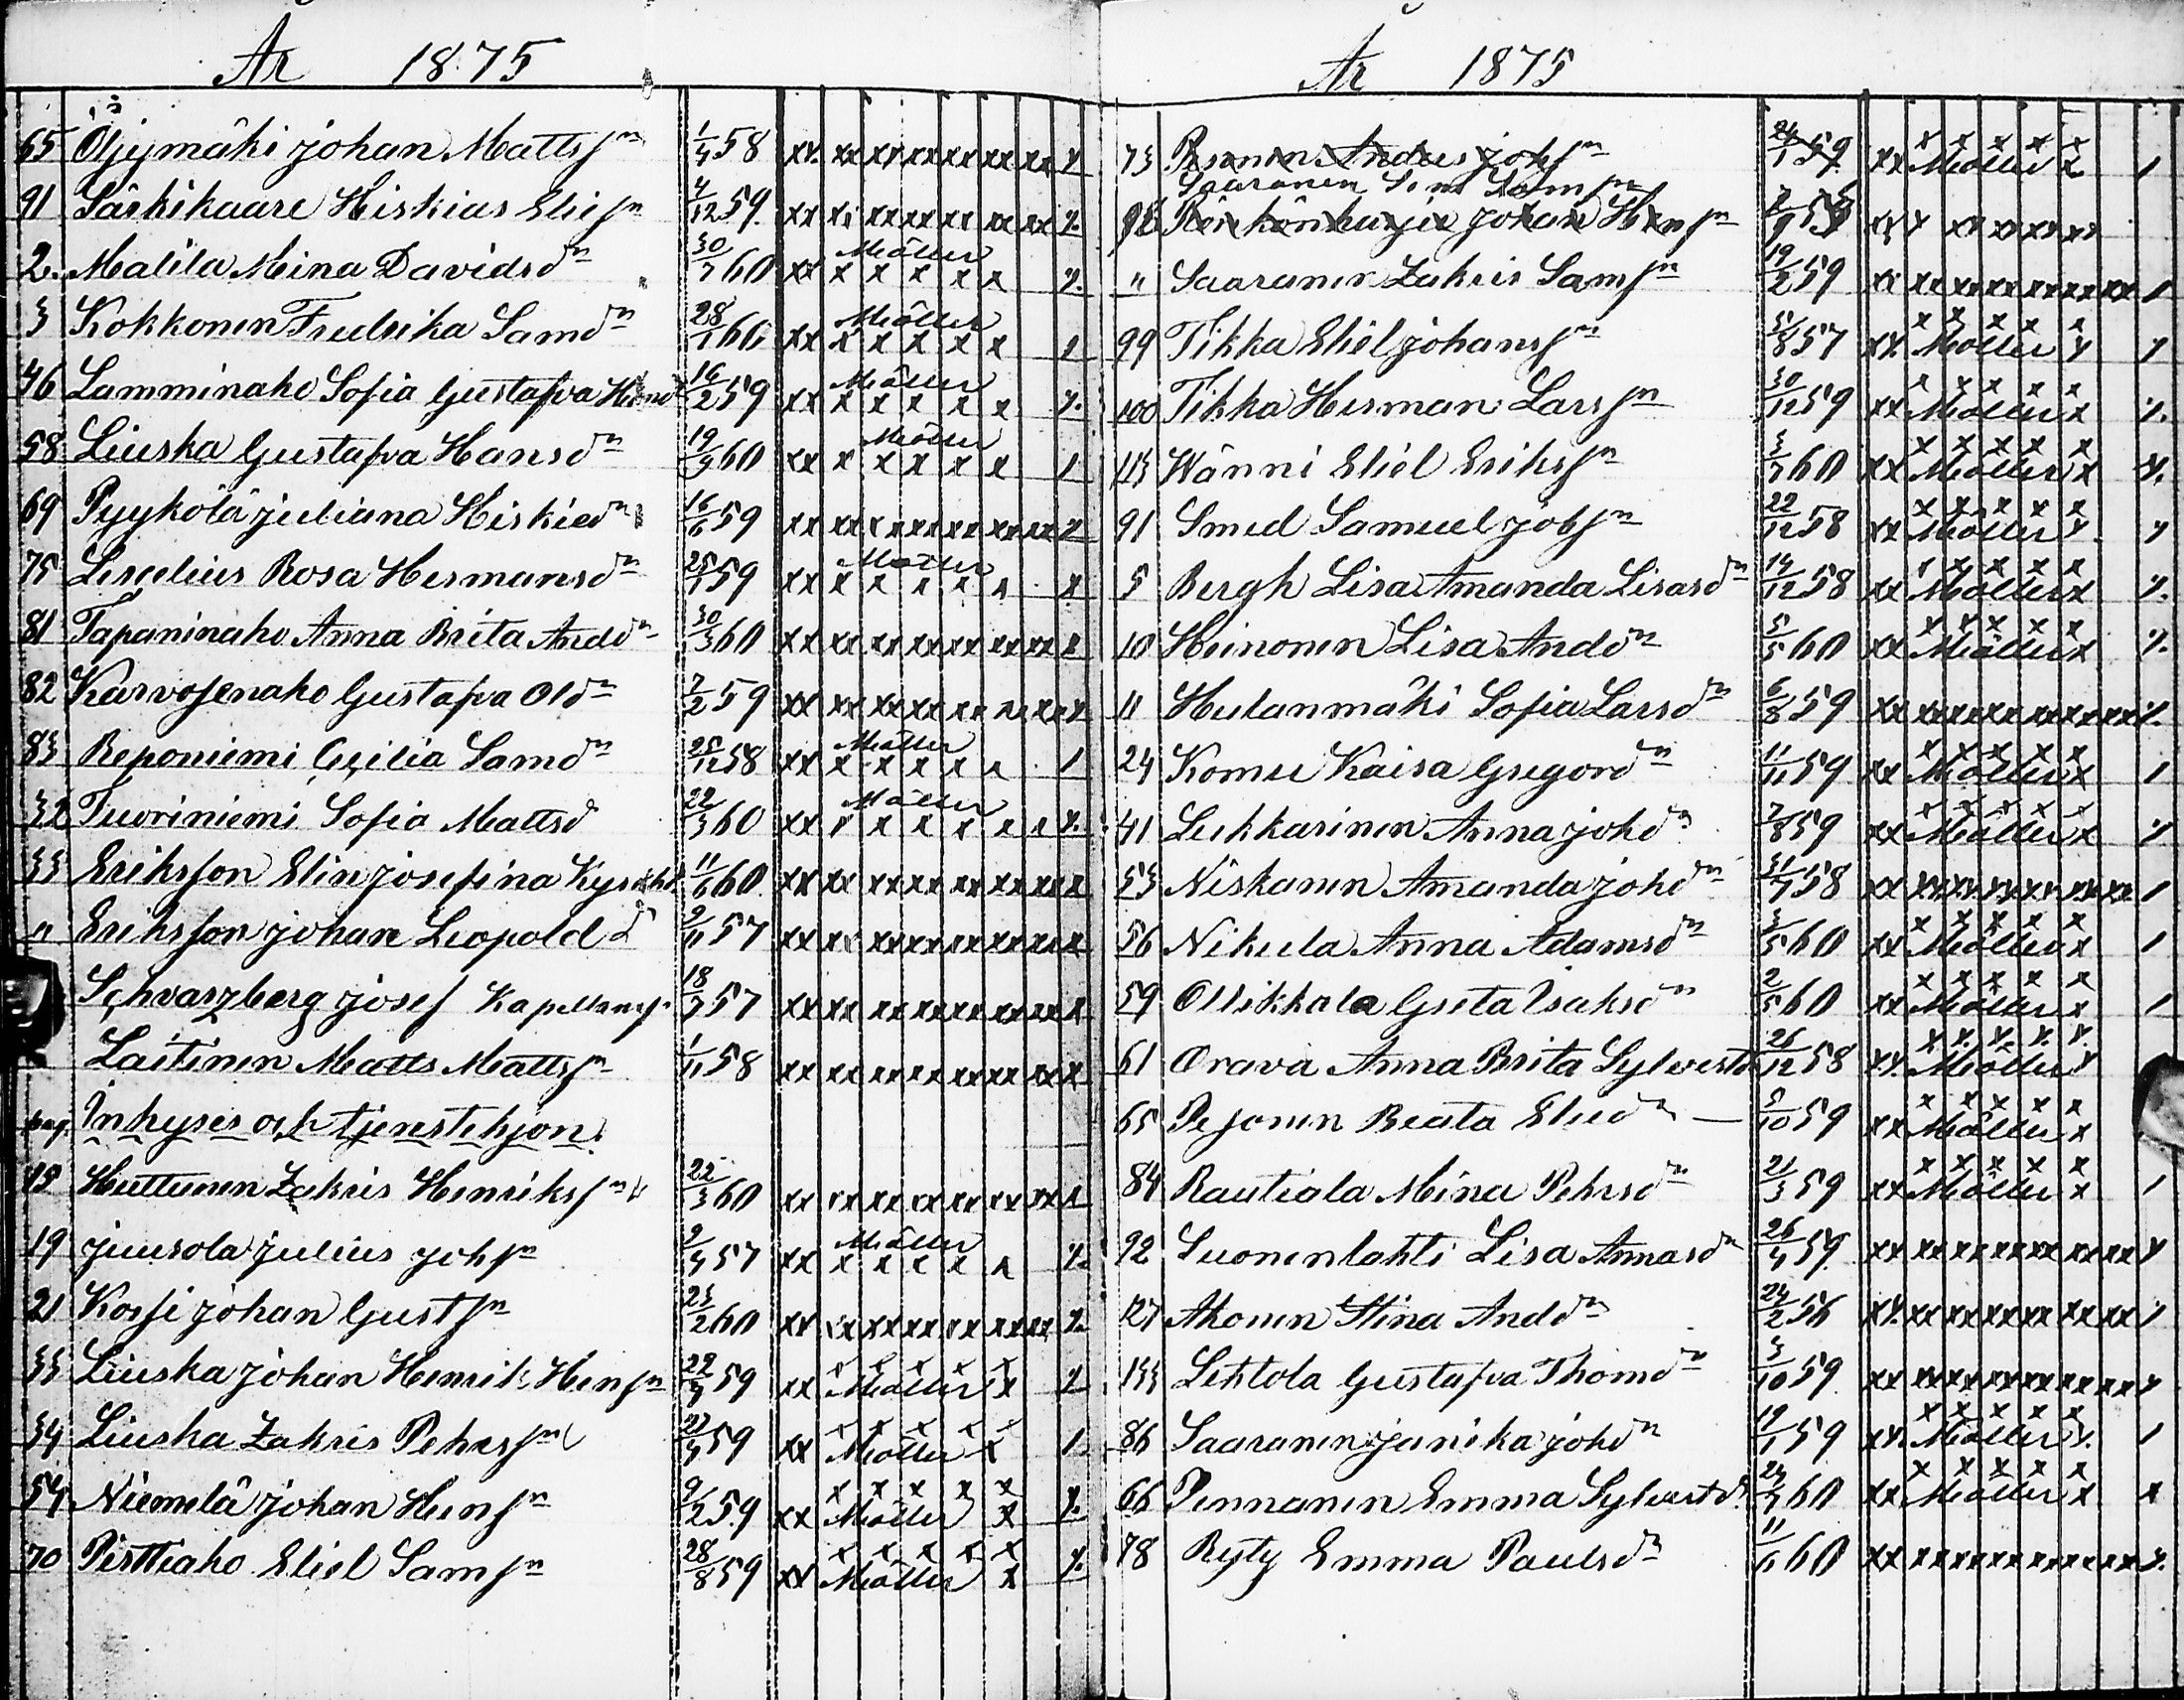 År 1875
65 Öljymäki Johan Mattss:n 1/4 58 xx xx xx xx xx xx xx x
91 Särkikaare Hiskias Elis:n 4/12 59 xx xx xx xx xx xx xx x
2. Malila Mina Davidsdn 30/7 60 xx Möller x x x x x x
3 Kokkonen Fredrika Samdn 28/1 60 xx Möller x x x x x
46 Lamminaho Sofia Gustafva 16/2 59 xx Möller x x x x x
58 Liuska Gustafva Hansdn 19/9 60 xx Möller x x x x x
69 Pyykölä Juliana Hiskiedn 16/6 59 xx xx xx xx xx xx xx x
75 Lescelius Rosa Hermansdn 25/1 59 xx Möller x x x x x x
81 Tapaninaho Anna Brita Anddn 30/3 60 xx xx xx xx xx xx xx x
82 Karvosenaho Gustafva Oldn 7/2 59 xx xx xx xx xx xx xx x
83 Reponiemi Cecilia Samdn 25/12 58 xx Möller x x x x x
32 Tuoriniemi Sofia Mattsd 22/3 60 xx Möller x x x x x x
33 Eriksson Elin Josefina 11/6 60 xx xx xx xx xx xx xx x
" Eriksson Johan Leopold 9/11 57 xx xx xx xx xx xx xx x
Schvarzberg Josef Kapellans 18/7 57 xx xx xx xx xx xx xx x
Laitinen Matts Mattss:n 1/11 58 xx xx xx xx xx xx xx x
pag. Inhyses och tjenstehjon.
Huttunen Zakris Henrikss:n 22/3 60 xx xx xx xx xx xx xx x
19 Juusola Julius Johs:n 9/4 57 xx Möller x x x x x
21 Kossi Johan Gusts:n 23/2 60 xx xx xx xx xx xx xx x
33 Liuska Johan Henrik Hens:n 22/9 59 xx Möller x
34 Liuska Zakris Pehrss:n 22/4 59 xx Möller x
54 Niemelä Johan Hens:n 9/2 59 xx Möller x
70 Pirttiaho Eliel Sams:n 28/8 59 xx Möller x
År 1875
73 Anders Johs:n 24/1 59 xx Möller x
Saaranen Sams:n
Johan Hens:n
" Saaranen Zakris Sams:n 19/2 59 xx xx xx xx xx xx xx
99 Tikka Eliel Johanss:n 5/8 57 xx Möller x
100 Tikka Herman Larss:n 30/12 59 xx Möller x
113 Wänni Eliel Erikss:n 3/7 60 xx Möller x
91 Smed Samuel Jobs:n 22/12 58 xx Möller x
5 Bergh Lisa Amanda Lisasdn 14/12 58 xx Möller x
10 Heinonen Lisa Anddn 5/5 60 xx Möller x
11 Hulanmäki Sofia Larsdn 6/8 59 xx xx xx xx xx xx xx
24 Komu Kaisa Gregordn 11/11 59 xx Möller x
41 Leskkarinen Anna Johdn 7/8 59 xx Möller x
53 Niskanen Amanda Johdn 31/7 58 xx xx xx xx xx xx xx
56 Nikula Anna Adamsdn 3/5 60 xx Möller x
59 Ollikkala Greta Isaksdn 2/5 60 xx Möller x
61 Orava Anna Brita Sylvestd 26/12 58 xx Möller x
65 Pesonen Beata Eliedn 5/10 59 xx Möller x
84 Rautiala Mina Pehrsdn 21/3 59 xx Möller x
92 Suonenlahti Lisa Annasdn 26/4 59 xx xx xx xx xx xx xx
127 Ahonen Stina Anddn 24/2 56 xx xx xx xx xx xx xx
133 Lehtola Gustafva Thomdn 3/10 59 xx xx xx xx xx xx xx
86 Saaranen Junika Johdn 19/1 59 xx Möller x
66 Pennanen Emma Sylvestd 24/7 60 xx Möller x
78 Ryty Emma Paulsdn 11/6 60 xx xx xx xx xx xx xx